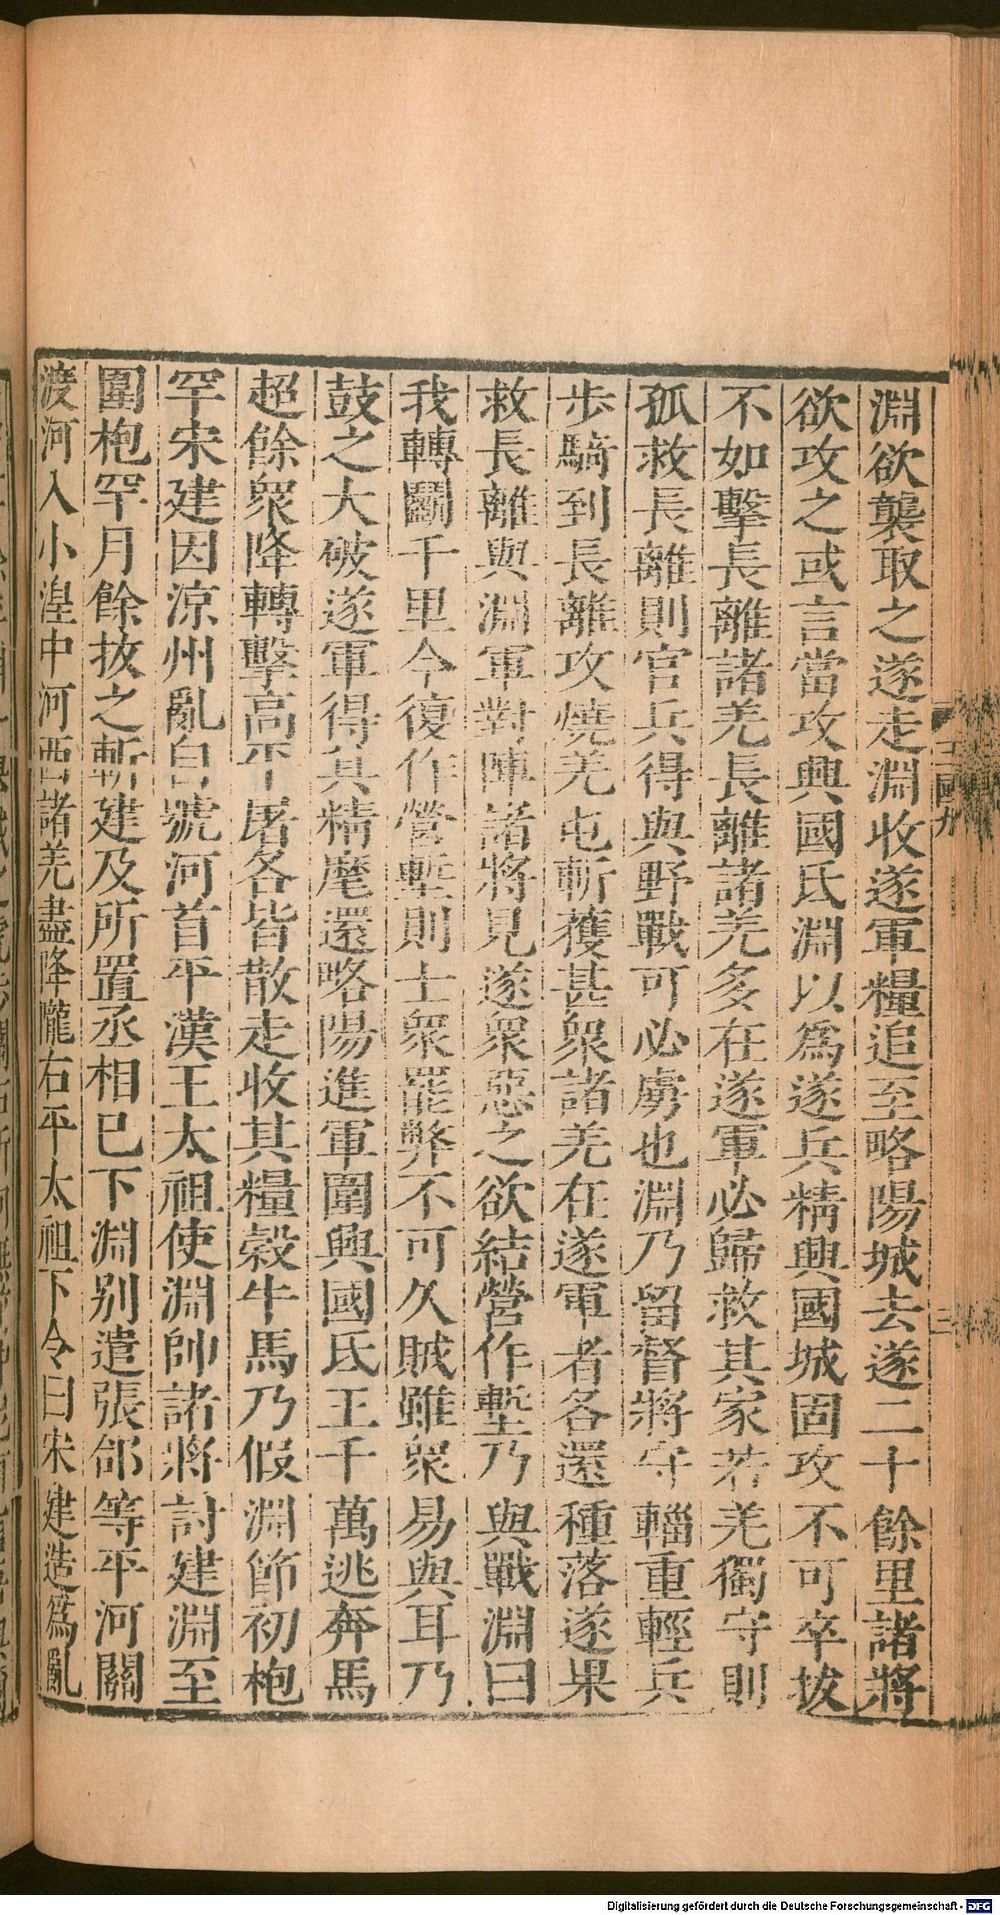 淵欲襲取之遂走淵收遂軍糧追至略陽城去遂二十餘里諸將
欲攻之或言當攻興國氐淵以爲遂兵精興國城固攻不可卒拔
不如擊長離諸羌長離諸羌多在遂軍必歸救其家若羌獨守則
孤救長離則官兵得與野戰可必虜也淵乃留督將守輜重輕兵
步騎到長離攻燒羌屯斬獲甚衆諸羌在遂軍者各還種落遂果
救長離與淵軍對陣諸將見遂衆惡之欲結營作塹乃與戰淵曰
我轉鬬千里今復作營塹則士衆罷弊不可久賊雖衆易與耳乃
鼓之大破遂軍得其精麾還略陽進軍圍興國氐王千萬逃奔馬
超餘衆降轉擊高平屠各皆散走收其糧穀牛馬乃假淵節初枹
罕宋建因涼州亂自號河首平漢王太祖使淵帥諸將討建淵至
圍枹罕月餘拔之斬建及所置丞相已下淵別遣張郃等平河關
渡河入小湟中河西諸羌盡降隴右平太祖下令曰宋建造爲亂
三國九
三
Digitalisierung gefördert durch die Deutsche Forschungsgemeinschaft - DFG